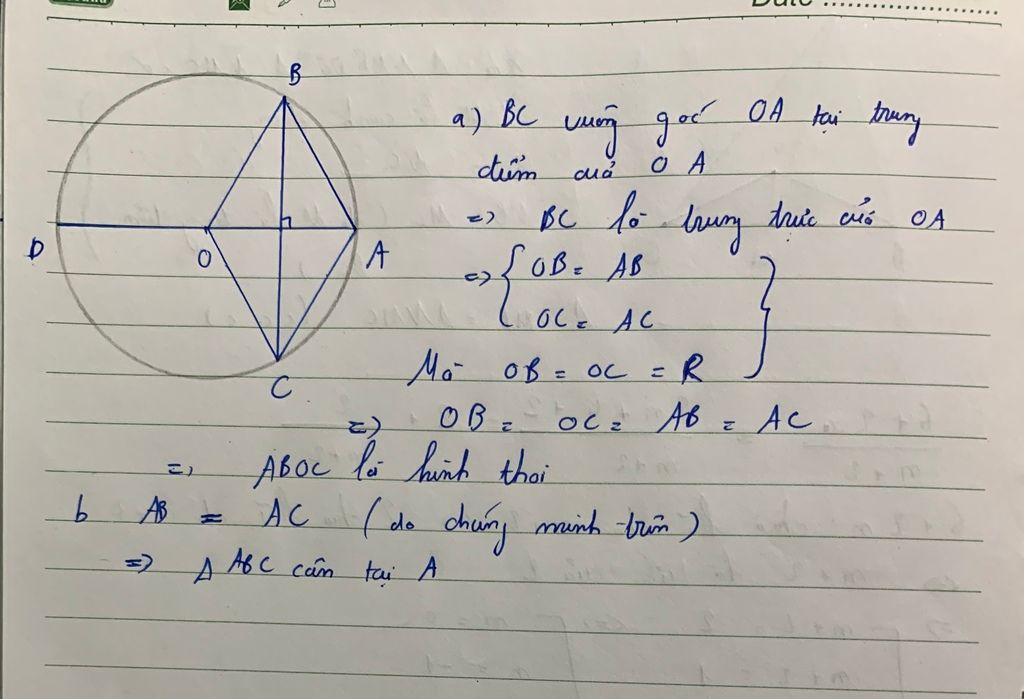 Date
B
a) BC vuông góc OA tại trung
điểm của OA
D
O
A
=> BC là trung trực của OA
=> { OB = AB
OC = AC }
C
Mà OB = OC = R
=> OB = OC = AB = AC
=> ABOC là hình thoi
b AB = AC (do chứng minh trên)
=> Δ ABC cân tại A